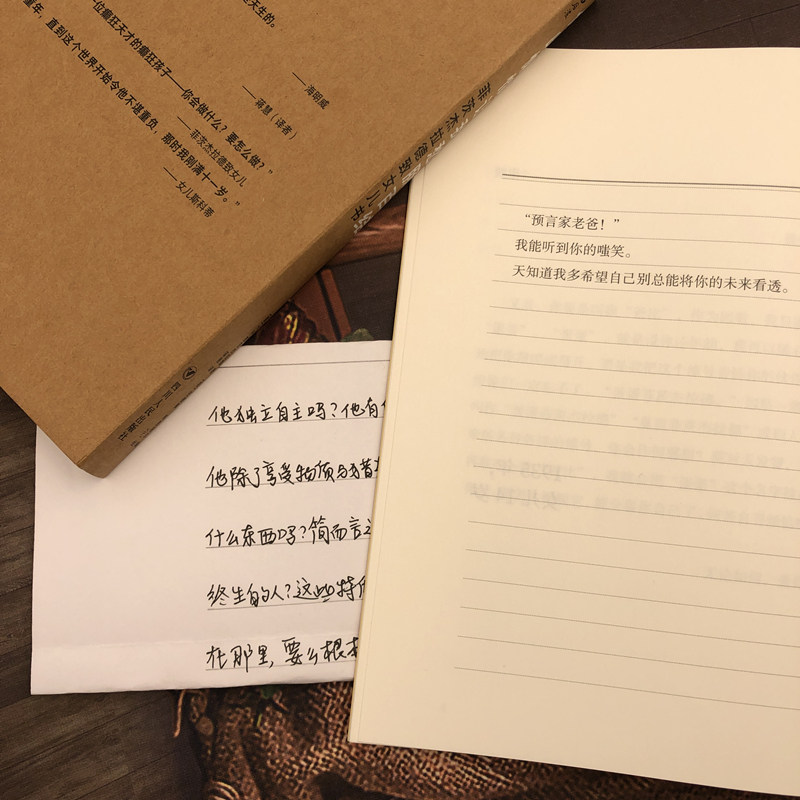 天生的。
——海明威
一位癫狂天才的癫狂孩子——你会做什么？要怎么做？”
——蒋慧（译者）
——菲茨杰拉德致女儿
童年，直到这个世界开始令他不堪重负，那时我刚满十一岁。”
——女儿斯科蒂
菲茨杰拉德致女儿书
四川人民出版社
“预言家老爸！”
我能听到你的嗤笑。
天知道我多希望自己别总能将你的未来看透。
他独立自主吗？他有
他除了享受物质与猎
什么东西吗？简而言之
终生的人？这些特
在那里，要么根本